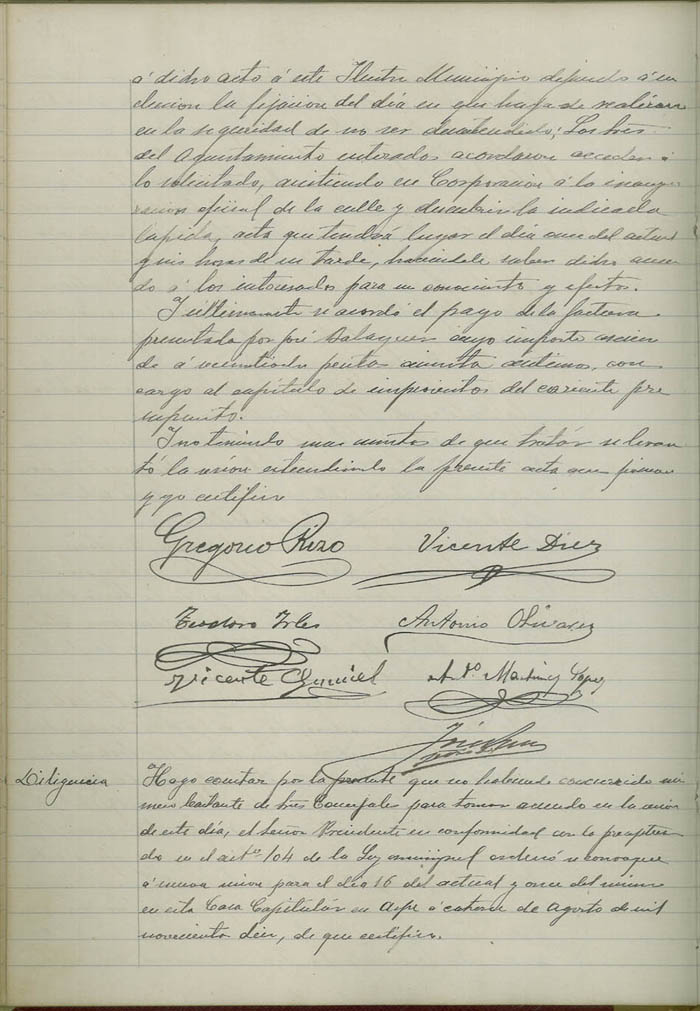 á dicho acto á este Ilustre Municipio dejando á su
eleccion la fijacion del dia en que haya de realizarse
en la seguridad de no ser desatendido; Los Sres.
del Ayuntamiento enterados acordaron acceder á
lo solicitado, asistiendo en Corporacion á la inaugu
racion oficial de la calle y descubrir la indicada
lapida, acto que tendrá lugar el dia once del actual
y seis horas de su tarde, haciendole saber dicho acuer
do á los interesados para su conocimiento y efectos.
Y últimamente se acordó el pago de la factura
presentada por José Balaguer cuyo importe ascien
de á veintiocho pesetas cincuenta centimos, con
cargo al capitulo de imprevistos del corriente pre
supuesto.
Y no teniendo mas asuntos de que tratar se levan
tó la sesion estendiendo la presente acta que firman
y yo certifico
Gregorio Rizo Vicente Diez
Teodoro Irles Antonio Olivares
Vicente At.º Martinez Lopez
Diligencia
Hago constar por la presente que no habiendo concurrido nú
mero bastante de Sres Concejales para tomar acuerdo en la sesion
de este dia, el Señor Presidente en conformidad con lo preceptua
do en el artº 104 de la Ley municipal ordenó se convoque
á nueva sesion para el dia 16 del actual y once del mismo
en esta Casa Capitular en Aspe á catorce de Agosto de mil
novecientos diez, de que certifico.